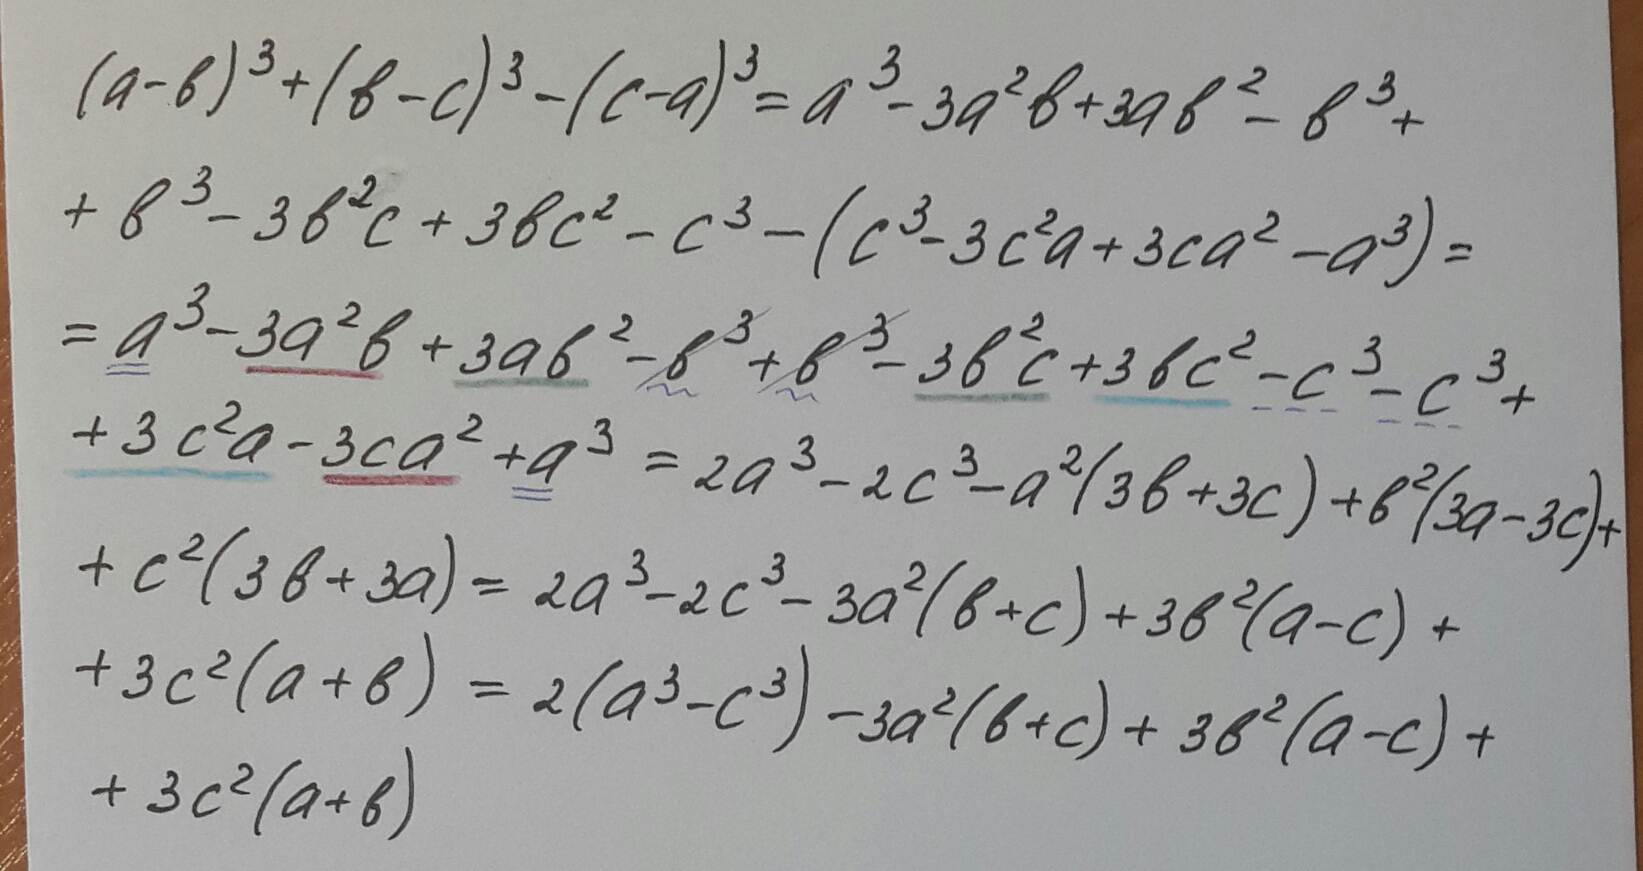 (a-в)³+(в-c)³-(c-a)³=a³-3a²в+3aв²-в³+
+в³-3в²c+3вc²-c³-(c³-3c²a+3ca²-a³)=
=a³-3a²в+3aв²-в³+в³-3в²c+3вc²-c³-c³+
+3c²a-3ca²+a³=2a³-2c³-a²(3в+3c)+в²(3a-3c)+
+c²(3в+3a)=2a³-2c³-3a²(в+c)+3в²(a-c)+
+3c²(a+в)=2(a³-c³)-3a²(в+c)+3в²(a-c)+
+3c²(a+в)